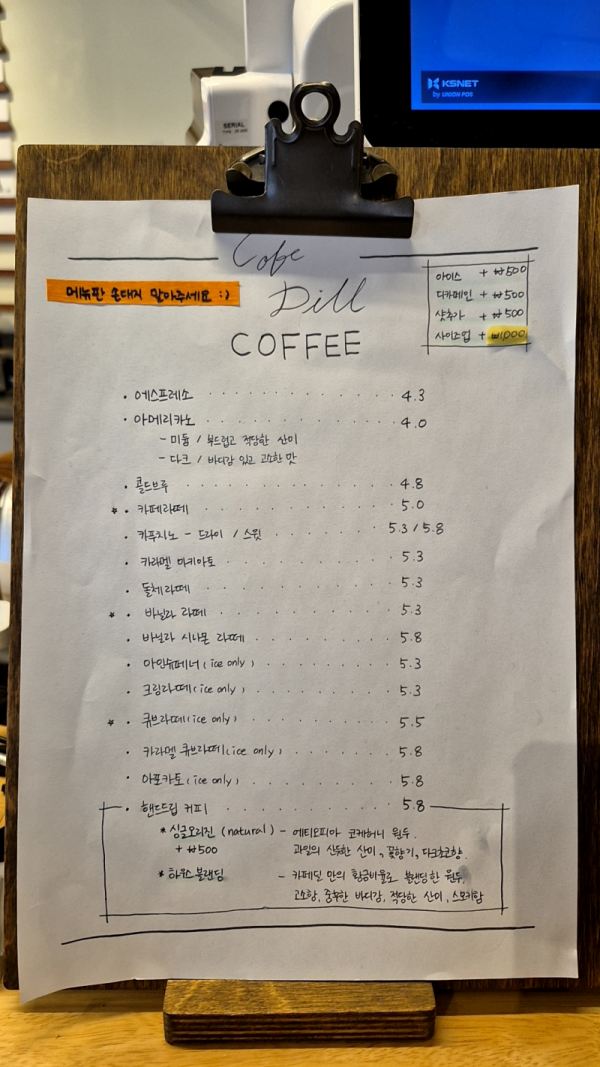 KSNET
by UNION POS
SERIAL
Cafe
Dill
COFFEE
메뉴판 손대지 말아주세요 :)
아이스 + ₩500
디카페인 + ₩500
샷추가 + ₩500
사이즈업 + ₩1000
· 에스프레소 4.3
· 아메리카노 4.0
- 미듐 / 부드럽고 적당한 산미
- 다크 / 바디감 있고 고소한 맛
· 콜드브루 4.8
* · 카페라떼 5.0
· 카푸치노 - 드라이 / 스윗 5.3 / 5.8
· 카라멜 마키아토 5.3
· 돌체라떼 5.3
* · 바닐라 라떼 5.3
· 바닐라 시나몬 라떼 5.8
· 아인슈페너 (ice only) 5.3
· 크림라떼 (ice only) 5.3
* · 큐브라떼 (ice only) 5.5
· 카라멜 큐브라떼 (ice only) 5.8
· 아포카토 (ice only) 5.8
· 핸드드립 커피 5.8
* 싱글오리진 (natural) - 에티오피아 코케허니 원두.
+ ₩500 과일의 산뜻한 산미, 꽃향기, 다크초코향.
* 하우스블랜딩 - 카페딜 만의 황금비율로 블랜딩한 원두,
고소함, 중후한 바디감, 적당한 산미, 스모키함